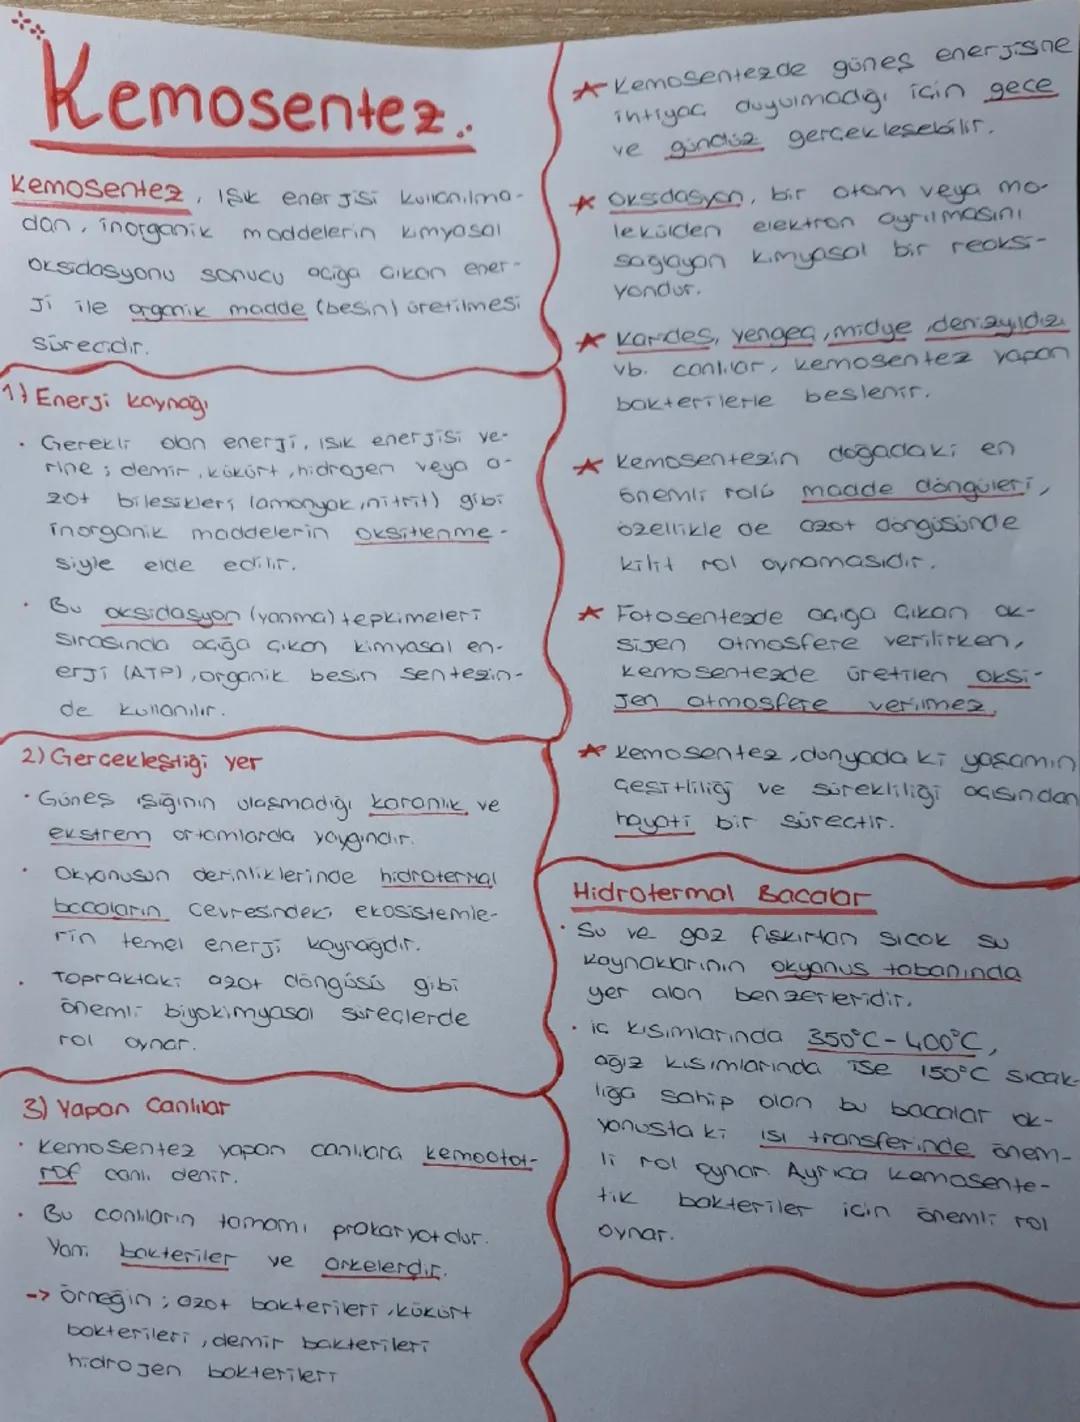 Kemosentez..
Kemosentez, ışık enerjisi kullanılma-
dan, inorganik maddelerin kimyasal
oksidasyonu sonucu açığa çıkan ener-
ji ile organik madde (besin) üretilmesi
sürecidir.
1) Enerji kaynağı
· Gerekli olan enerji, ışık enerjisi ye-
rine; demir, kükürt, hidrojen veya a-
zot bileşikleri (amonyak, nitrit) gibi
inorganik maddelerin oksitlenme-
siyle elde edilir.
· Bu oksidasyon (yanma) tepkimeleri
sırasında açığa çıkan kimyasal en-
erji (ATP), organik besin sentezin-
de kullanılır.
2) Gerçekleştiği yer
· Güneş ışığının ulaşmadığı karanlık ve
ekstrem ortamlarda yaygındır.
· Okyanusun derinliklerinde hidrotermal
bacaların çevresindeki ekosistemle-
rin temel enerji kaynağıdır.
· Topraktaki azot döngüsü gibi
önemli biyokimyasal süreçlerde
rol oynar.
3) Yapan Canlılar
· Kemosentez yapan canlılara kemootot-
rof canlı denir.
· Bu canlıların tamamı prokaryotdur.
Yani bakteriler ve arkelerdir.
-> Örneğin; azot bakterileri, kükürt
bakterileri, demir bakterileri
hidrojen bakterileri
★ Kemosentezde güneş enerjisne
ihtiyaç duyulmadığı için gece
ve gündüz gerçekleşebilir.
★ Oksidasyon, bir atom veya mo-
lekülden elektron ayrılmasını
sağlayan kimyasal bir reaksi-
yondur.
★ Karides, yengeç, midye, denizyıldızı
vb. canlılar, kemosentez yapan
bakterilerle beslenir.
★ Kemosentezin doğadaki en
önemli rolü madde döngüleri,
özellikle de azot döngüsünde
kilit rol oynamasıdır.
★ Fotosentezde açığa çıkan ok-
sijen atmosfere verilirken,
kemosentezde üretilen oksi-
jen atmosfere verilmez.
★ Kemosentez, dünyada ki yaşamın
çeşitliliği ve sürekliliği açısından
hayati bir süreçtir.
Hidrotermal Bacalar
· Su ve gaz fışkırtan sıcak su
kaynaklarının okyanus tabanında
yer alan benzerleridir.
· iç kısımlarında 350°C - 400°C,
ağız kısımlarında ise 150°C sıcak-
lığa sahip olan bu bacalar ok-
yanusta ki ısı transferinde önem-
li rol oynar. Ayrıca kemosente-
tik bakteriler için önemli rol
oynar.